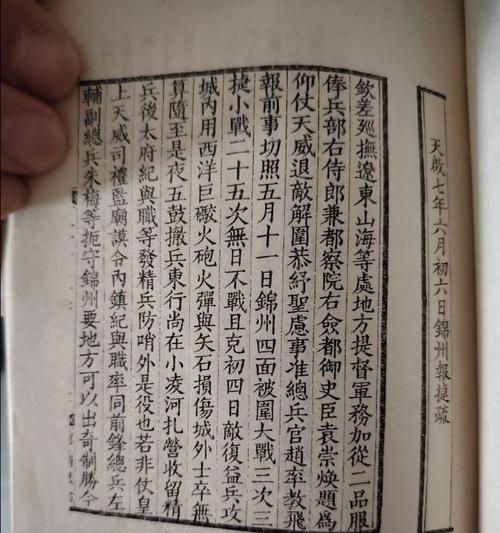 天啟七年六月初六日錦州報捷疏
欽差廵撫遼東山海等處地方提督軍務加從二品服
俸兵部右侍郎兼都察院右僉都御史臣袁崇煥題爲
仰仗天威退敵解圍恭紓聖慮事准總兵官趙率教飛
報前事切照五月十一日錦州四面被圍大戰三次三
捷小戰二十五次無日不戰且克初四日敵復益兵攻
城內用西洋巨礮火砲火彈與矢石損傷城外士卒無
算隨至是夜五鼓撤兵東行尚在小凌河扎營收留精
兵後太府紀與職等發精兵防哨外是役也若非仗皇
上天威司禮監廟謨令內鎮紀與職率同前鋒總兵左
輔副總兵朱梅等扼守錦州要地方可以出奇制勝今